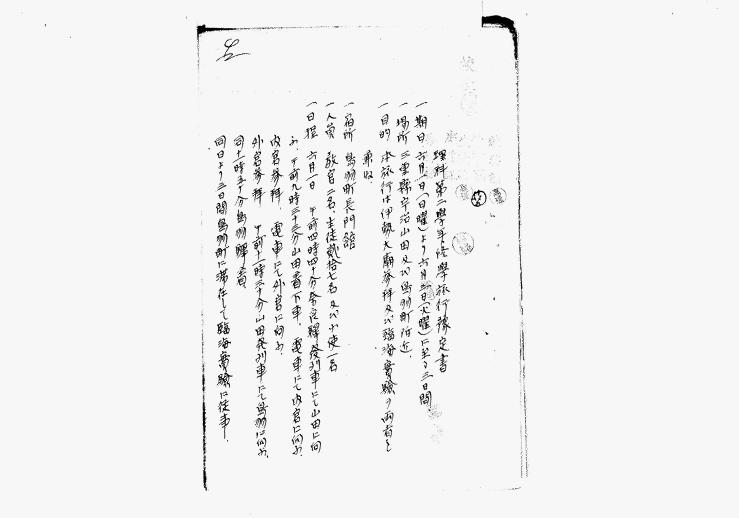 理科第二學年修學旅行豫定書
一期日 六月一日(日曜)より六月三日(火曜)に至る三日間
一場所 三重縣宇治山田及び鳥羽町附近
一目的 本旅行は伊勢大廟參拜及び臨海實驗の両者を
兼ぬ
一宿所 鳥羽町長門舘
一人員 敎官二名、生徒貮拾七名及び小使一名
一日程 六月一日 午前四時四十分奈良驛發列車にて山田に向
ふ、午前九時三十三分山田着下車、電車にて内宮に向ふ、
内宮參拜、電車にて外宮に向ふ
外宮參拜 午前十一時三十分山田発列車にて鳥羽に向ふ、
同十二時五十分鳥羽驛着
同日より三日間鳥羽町に滞在して臨海實驗に従事、